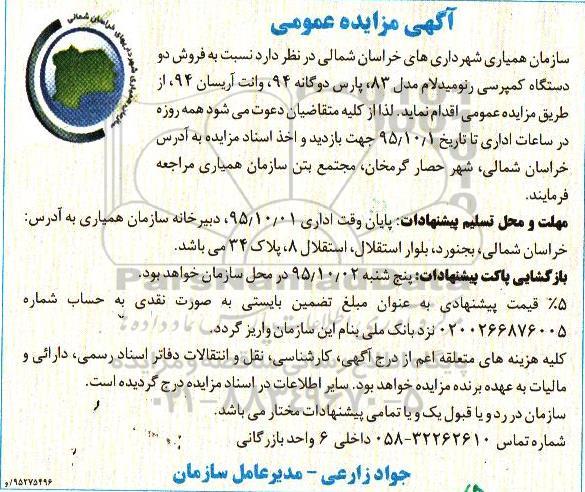 آگهی مزایده عمومی
سازمان همیاری شهرداری های خراسان شمالی در نظر دارد نسبت به فروش دو
دستگاه کمپرسی رنومیدلام مدل ۸۳، پارس دوگانه ۹۴، وانت آریسان ۹۴، از
طریق مزایده عمومی اقدام نماید. لذا از کلیه متقاضیان دعوت می شود همه روزه
در ساعات اداری تا تاریخ ۹۵/۱۰/۱ جهت بازدید و اخذ اسناد مزایده به آدرس
خراسان شمالی، شهر حصار گرمخان، مجتمع بتن سازمان همیاری مراجعه
فرمایند.
مهلت و محل تسلیم پیشنهادات: پایان وقت اداری ۹۵/۱۰/۰۱، دبیرخانه سازمان همیاری به آدرس:
خراسان شمالی، بجنورد، بلوار استقلال، استقلال ۸، پلاک ۳۴ می باشد.
بازگشایی پاکت پیشنهادات: پنج شنبه ۹۵/۱۰/۰۲ در محل سازمان خواهد بود.
۵٪ قیمت پیشنهادی به عنوان مبلغ تضمین بایستی به صورت نقدی به حساب شماره
۰۲۰۰۲۶۶۸۷۶۰۰۵ نزد بانک ملی بنام این سازمان واریز گردد.
کلیه هزینه های متعلقه اعم از درج آگهی، کارشناسی، نقل و انتقالات دفاتر اسناد رسمی، دارائی و
مالیات به عهده برنده مزایده خواهد بود. سایر اطلاعات در اسناد مزایده درج گردیده است.
سازمان در رد و یا قبول یک و یا تمامی پیشنهادات مختار می باشد.
شماره تماس ۳۲۲۶۲۶۱۰-۰۵۸ داخلی ۶ واحد بازرگانی
جواد زارعی - مدیرعامل سازمان
۹۵۲۷۵۴۹۶/و
سازمان همیاری شهرداریهای خراسان شمالی
۰۲۱-۸۸۳۴۹۶۷۰-۵